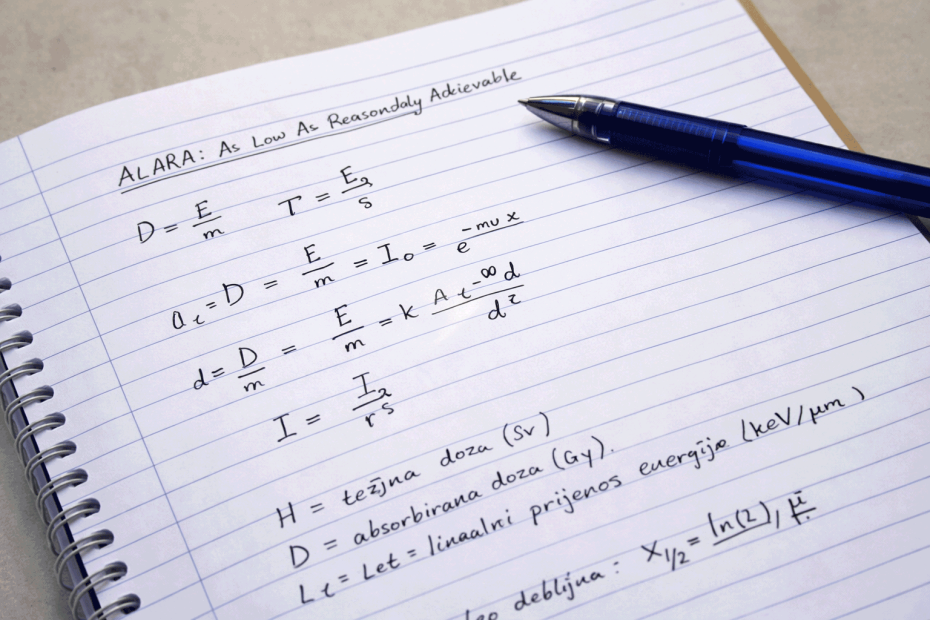 ALARA: As Low As Reasondaly Adievable
D = E/m    T = E₂/s
a_t = D = E/m = I₀ = e^(-mu x)
d = D/m = E/m = k A t^(-∞ d)/d²
I = I₂/r^s
H = težjna doza (Sv)
D = absorbirana doza (Gy).
Lt = Let = linaalni prijenos energije (keV/μm)
deblijna: X_1/2 = ln(2), μ